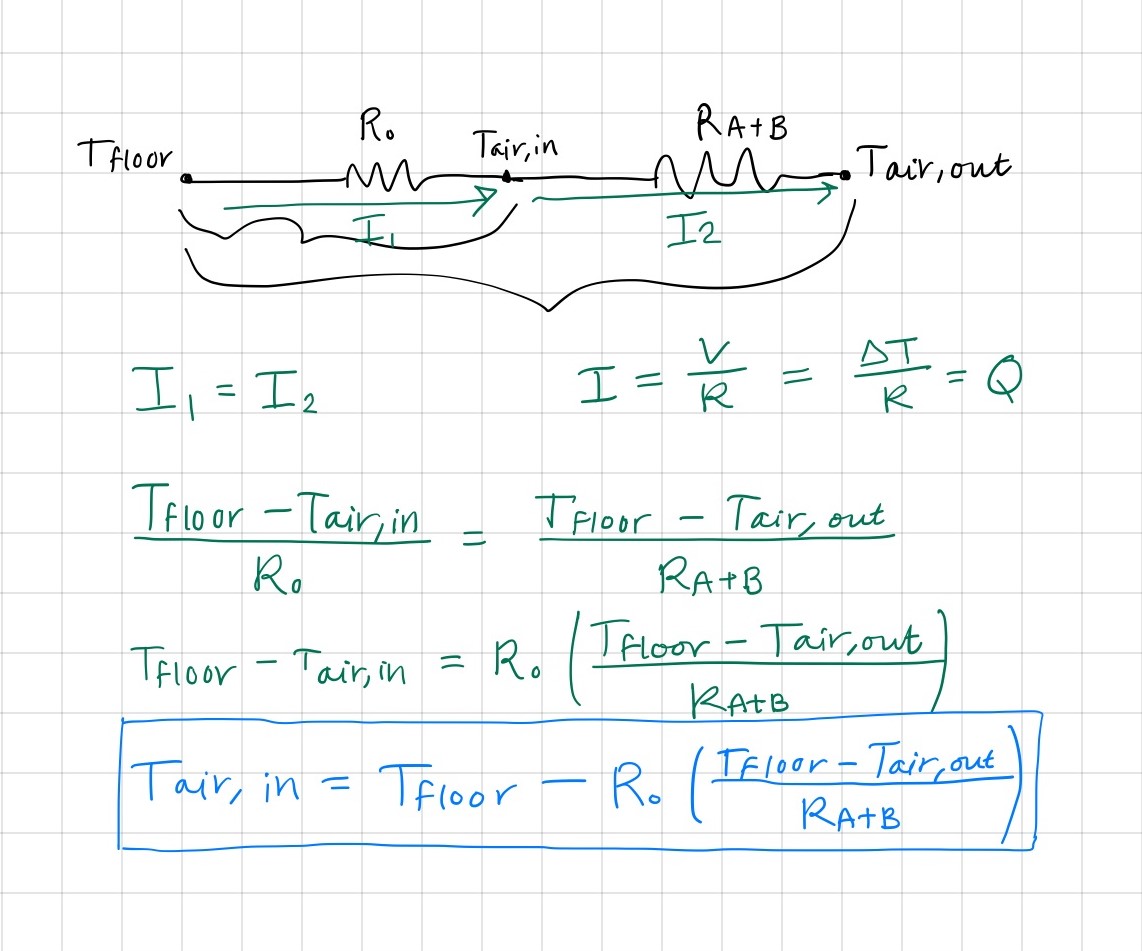 R₀
R A+B
Tfloor
Tair,in
Tair,out
I₁
I2
I₁ = I₂
I = V/R = ΔT/R = Q
(Tfloor − Tair,in)/R₀ = (TFloor − Tair,out)/RA+B
Tfloor − Tair,in = R₀ ((Tfloor − Tair,out)/RA+B)
Tair, in = Tfloor − R₀ ((TFloor − Tair,out)/RA+B)